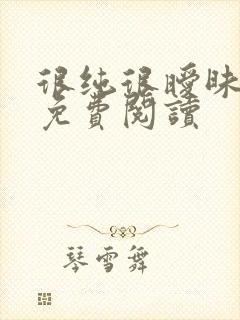 很纯很曖昧
免費閱讀
琴雪舞